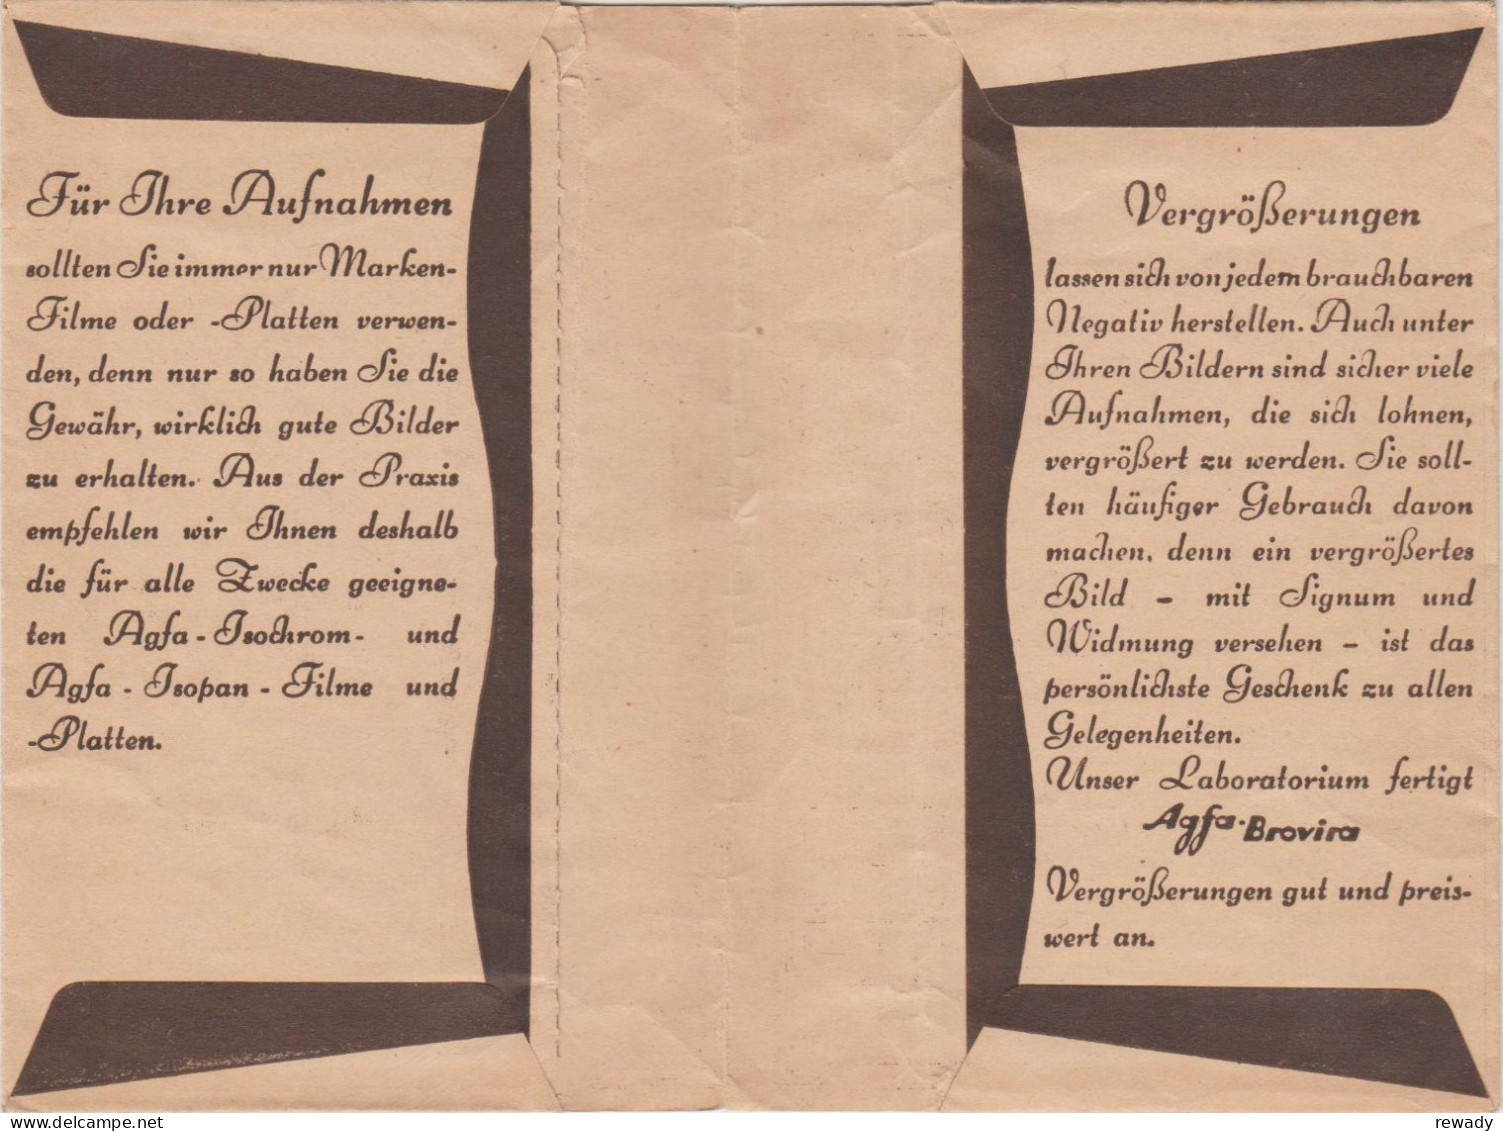 Für Ihre Aufnahmen
sollten Sie immer nur Marken-
Filme oder -Platten verwen-
den, denn nur so haben Sie die
Gewähr, wirklich gute Bilder
zu erhalten. Aus der Praxis
empfehlen wir Ihnen deshalb
die für alle Zwecke geeigne-
ten Agfa-Isochrom- und
Agfa-Isopan-Filme und
-Platten.
Vergrößerungen
lassen sich von jedem brauchbaren
Negativ herstellen. Auch unter
Ihren Bildern sind sicher viele
Aufnahmen, die sich lohnen,
vergrößert zu werden. Sie soll-
ten häufiger Gebrauch davon
machen, denn ein vergrößertes
Bild - mit Signum und
Widmung versehen - ist das
persönlichste Geschenk zu allen
Gelegenheiten.
Unser Laboratorium fertigt
Agfa-Brovira
Vergrößerungen gut und preis-
wert an.
delcampe.net
rewady